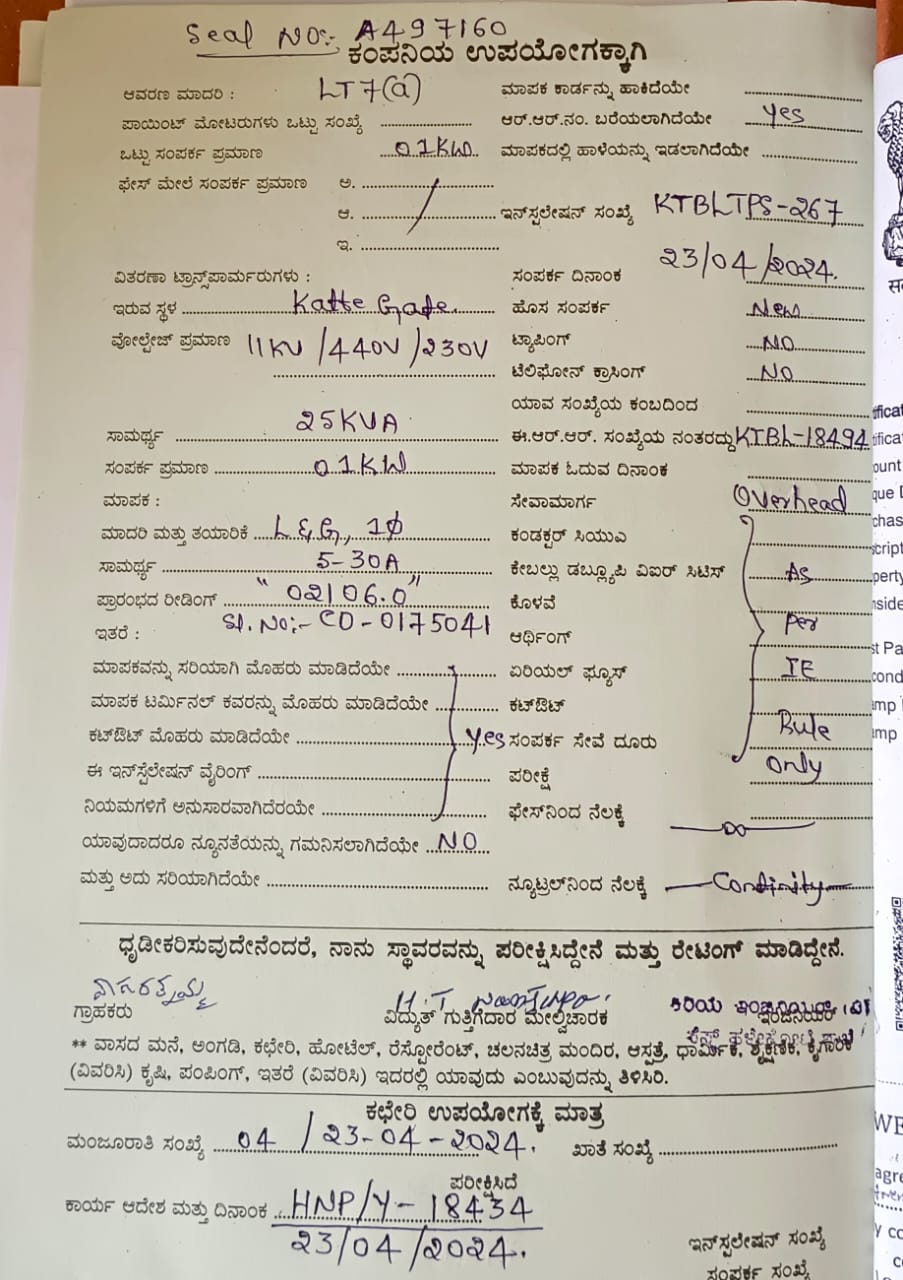 Seal NO:- A497160
ಕಂಪನಿಯ ಉಪಯೋಗಕ್ಕಾಗಿ
ಆವರಣ ಮಾದರಿ : LT7(a) ಮಾಪಕ ಕಾರ್ಡನ್ನು ಹಾಕಿದೆಯೇ
ಪಾಯಿಂಟ್ ಮೋಟರುಗಳು ಒಟ್ಟು ಸಂಖ್ಯೆ ಆರ್.ಆರ್.ನಂ. ಬರೆಯಲಾಗಿದೆಯೇ Yes
ಒಟ್ಟು ಸಂಪರ್ಕ ಪ್ರಮಾಣ 01KW ಮಾಪಕದಲ್ಲಿ ಹಾಳೆಯನ್ನು ಇಡಲಾಗಿದೆಯೇ
ಫೇಸ್ ಮೇಲೆ ಸಂಪರ್ಕ ಪ್ರಮಾಣ ಅ.
ಆ. ಇನ್‌ಸ್ಪಲೇಷನ್ ಸಂಖ್ಯೆ KTBLTPS-267
ಇ.
ವಿತರಣಾ ಟ್ರಾನ್ಸ್‌ಪಾರ್ಮರುಗಳು : ಸಂಪರ್ಕ ದಿನಾಂಕ 23/04/2024.
ಇರುವ ಸ್ಥಳ Katte Gate. ಹೊಸ ಸಂಪರ್ಕ New
ವೋಲ್ಟೇಜ್ ಪ್ರಮಾಣ 11KV/440V/230V ಟ್ಯಾಪಿಂಗ್ NO
ಟೆಲಿಫೋನ್ ಕ್ರಾಸಿಂಗ್ NO
ಯಾವ ಸಂಖ್ಯೆಯ ಕಂಬದಿಂದ
ಸಾಮರ್ಥ್ಯ 25KVA ಈ.ಆರ್.ಆರ್. ಸಂಖ್ಯೆಯ ನಂತರದ್ದು KTBL-18494
ಸಂಪರ್ಕ ಪ್ರಮಾಣ 01KW ಮಾಪಕ ಓದುವ ದಿನಾಂಕ
ಮಾಪಕ : ಸೇವಾಮಾರ್ಗ Overhead
ಮಾದರಿ ಮತ್ತು ತಯಾರಿಕೆ L&G, 1Φ ಕಂಡಕ್ಟರ್ ಸಿಯುಎ
ಸಾಮರ್ಥ್ಯ 5-30A ಕೇಬಲ್ಲು ಡಬ್ಲ್ಯೂಪಿ ವಿಐರ್ ಸಿಟಿಸ್ As
ಪ್ರಾರಂಭದ ರೀಡಿಂಗ್ "02106.0" ಕೊಳವೆ
ಇತರೆ : Sl. No:- CD-0175041 ಆರ್ಥಿಂಗ್ Per
ಮಾಪಕವನ್ನು ಸರಿಯಾಗಿ ಮೊಹರು ಮಾಡಿದೆಯೇ ಏರಿಯಲ್ ಫ್ಯೂಸ್ IE
ಮಾಪಕ ಟರ್ಮಿನಲ್ ಕವರನ್ನು ಮೊಹರು ಮಾಡಿದೆಯೇ ಕಟ್‌ಔಟ್
ಕಟ್‌ಔಟ್ ಮೊಹರು ಮಾಡಿದೆಯೇ Yes ಸಂಪರ್ಕ ಸೇವೆ ದೂರು Rule
ಈ ಇನ್‌ಸ್ಪೆಲೇಷನ್ ವೈರಿಂಗ್ ಪರೀಕ್ಷೆ Only
ನಿಯಮಗಳಿಗೆ ಅನುಸಾರವಾಗಿದೆರಯೇ ಫೇಸ್‌ನಿಂದ ನೆಲಕ್ಕೆ
ಯಾವುದಾದರೂ ನ್ಯೂನತೆಯನ್ನು ಗಮನಿಸಲಾಗಿದೆಯೇ NO
ಮತ್ತು ಅದು ಸರಿಯಾಗಿದೆಯೇ ನ್ಯೂಟ್ರಲ್‌ನಿಂದ ನೆಲಕ್ಕೆ Continity
ಧೃಡೀಕರಿಸುವುದೇನೆಂದರೆ, ನಾನು ಸ್ಥಾವರವನ್ನು ಪರೀಕ್ಷಿಸಿದ್ದೇನೆ ಮತ್ತು ರೇಟಿಂಗ್ ಮಾಡಿದ್ದೇನೆ.
ನಾಗರತ್ನಮ್ಮ ಕಿರಿಯ ಇಂಜಿನಿಯರ್
ಗ್ರಾಹಕರು ವಿದ್ಯುತ್ ಗುತ್ತಿಗೆದಾರ ಮೇಲ್ವಿಚಾರಕ ಇಂಜಿನಿಯರ್
** ವಾಸದ ಮನೆ, ಅಂಗಡಿ, ಕಛೇರಿ, ಹೋಟೆಲ್, ರೆಸ್ಟೋರೆಂಟ್, ಚಲನಚಿತ್ರ ಮಂದಿರ, ಆಸ್ಪತ್ರೆ, ಧಾರ್ಮಿಕ, ಶೈಕ್ಷಣಿಕ, ಕೈಗಾರಿಕೆ
(ವಿವರಿಸಿ) ಕೃಷಿ, ಪಂಪಿಂಗ್, ಇತರೆ (ವಿವರಿಸಿ) ಇದರಲ್ಲಿ ಯಾವುದು ಎಂಬುವುದನ್ನು ತಿಳಿಸಿರಿ.
ಕಛೇರಿ ಉಪಯೋಗಕ್ಕೆ ಮಾತ್ರ
ಮಂಜೂರಾತಿ ಸಂಖ್ಯೆ 04/23-04-2024. ಖಾತೆ ಸಂಖ್ಯೆ
ಪರೀಕ್ಷಿಸಿದೆ
ಕಾರ್ಯ ಆದೇಶ ಮತ್ತು ದಿನಾಂಕ HNP/Y-18434
23/04/2024.
ಇನ್‌ಸ್ಪಲೇಷನ್ ಸಂಖ್ಯೆ
ಸಂಪರ್ಕ ಸಂಖ್ಯೆ